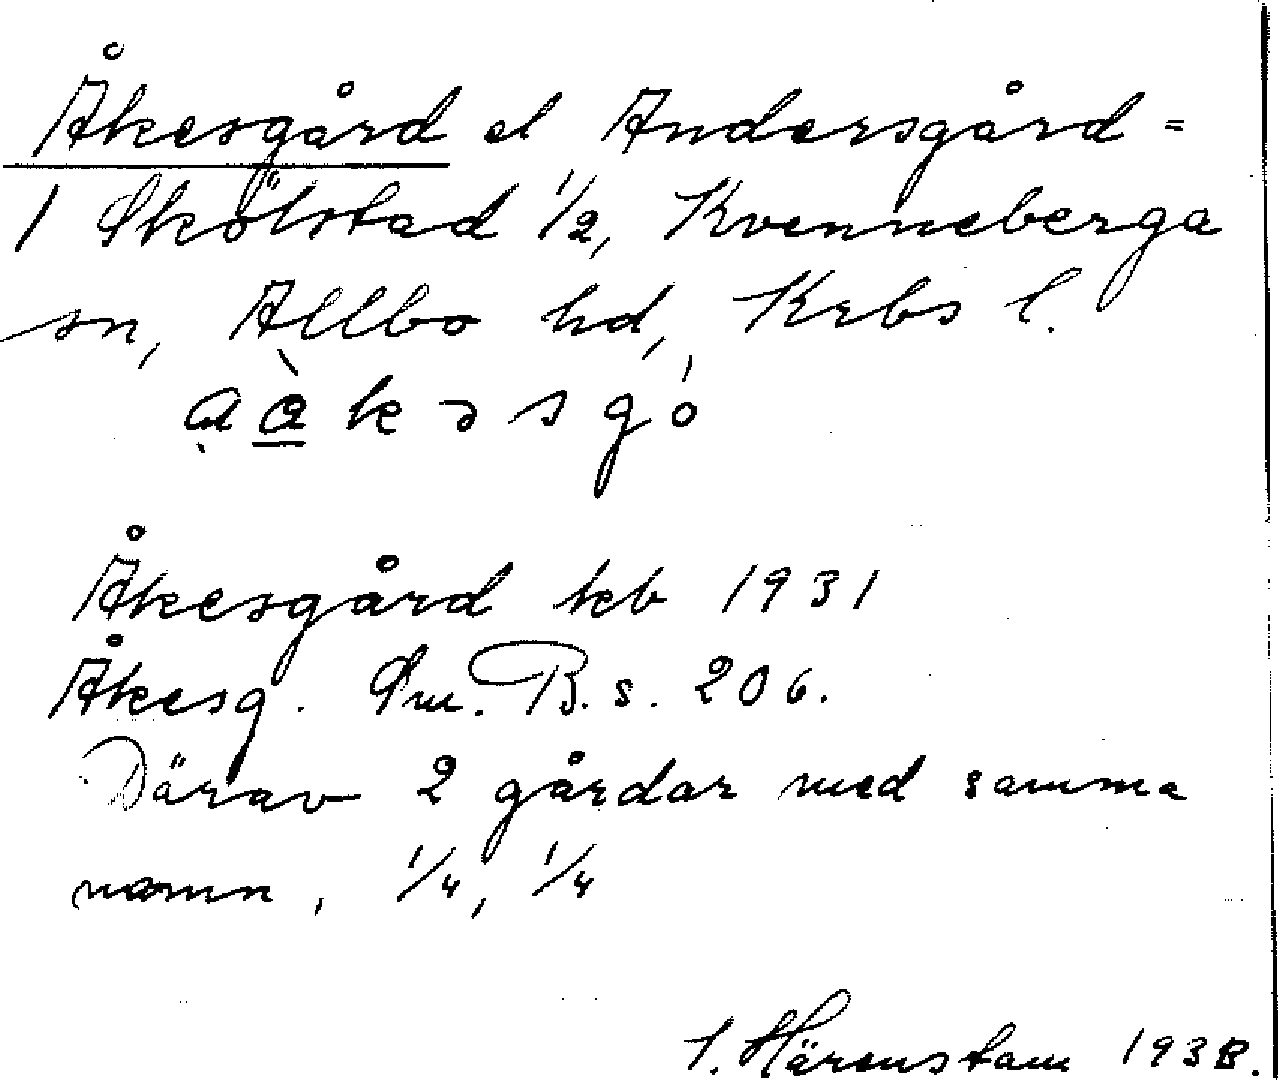 Åkesgård el Andersgård =
1 Skölstad 1/2, Kvenneberga
sn, Allbo hd, Krbs l.
ạὰkəsgó
Åkesgård kb 1931
Åkesg. Sm. B. s. 206.
Därav 2 gårdar med samma
namn, 1/4, 1/4
I. Härenstam 1938.